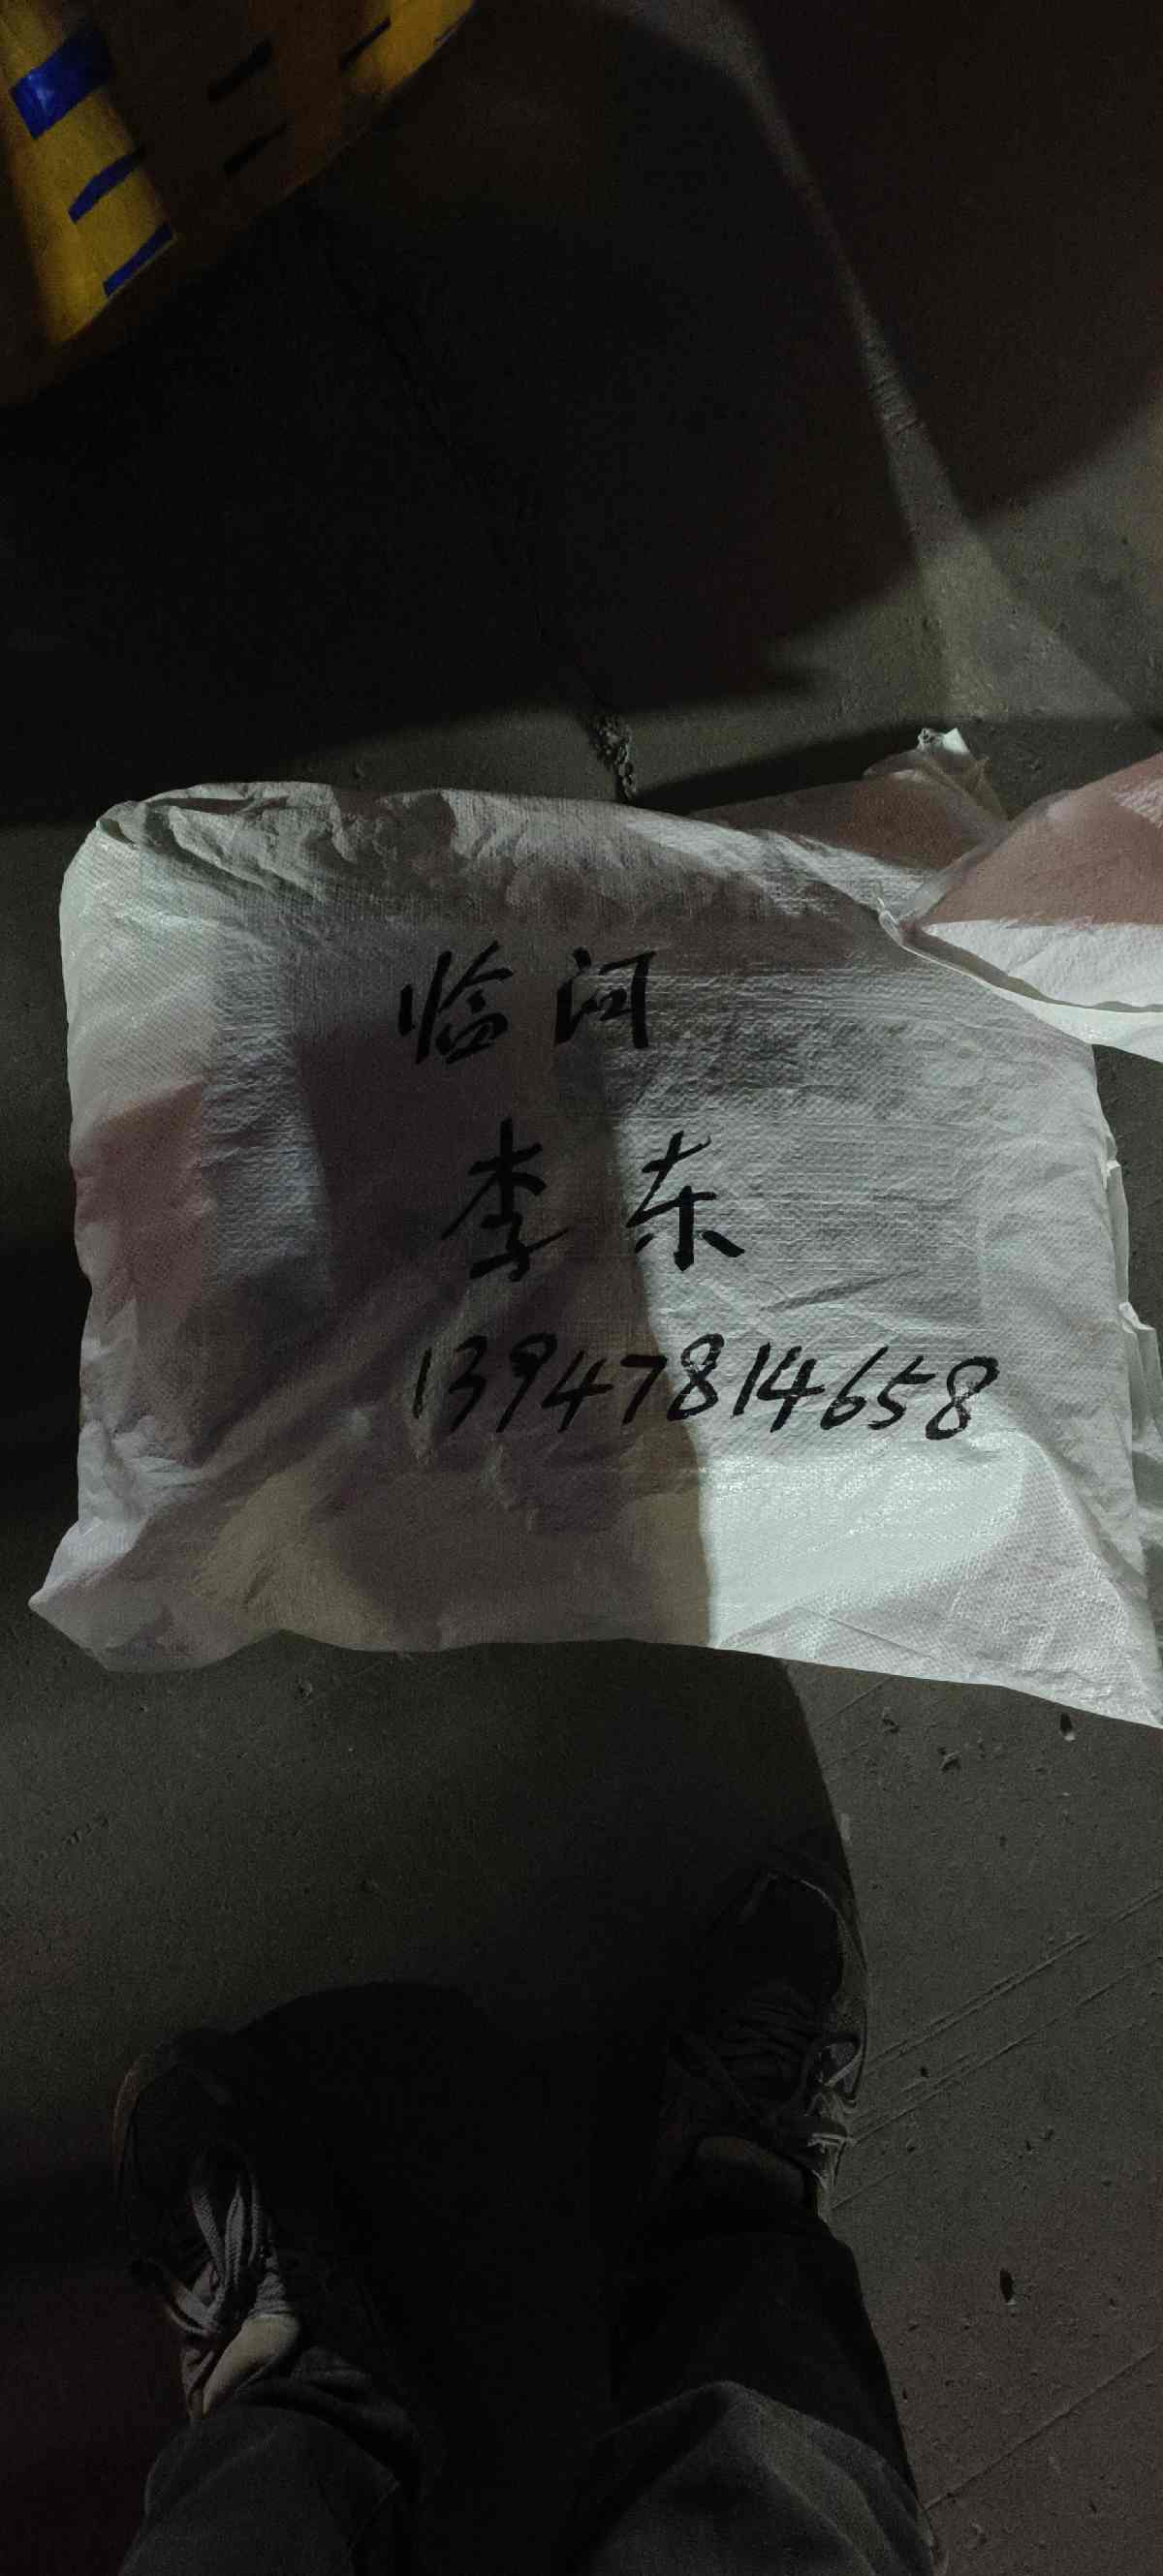 临河
李东
13947814658